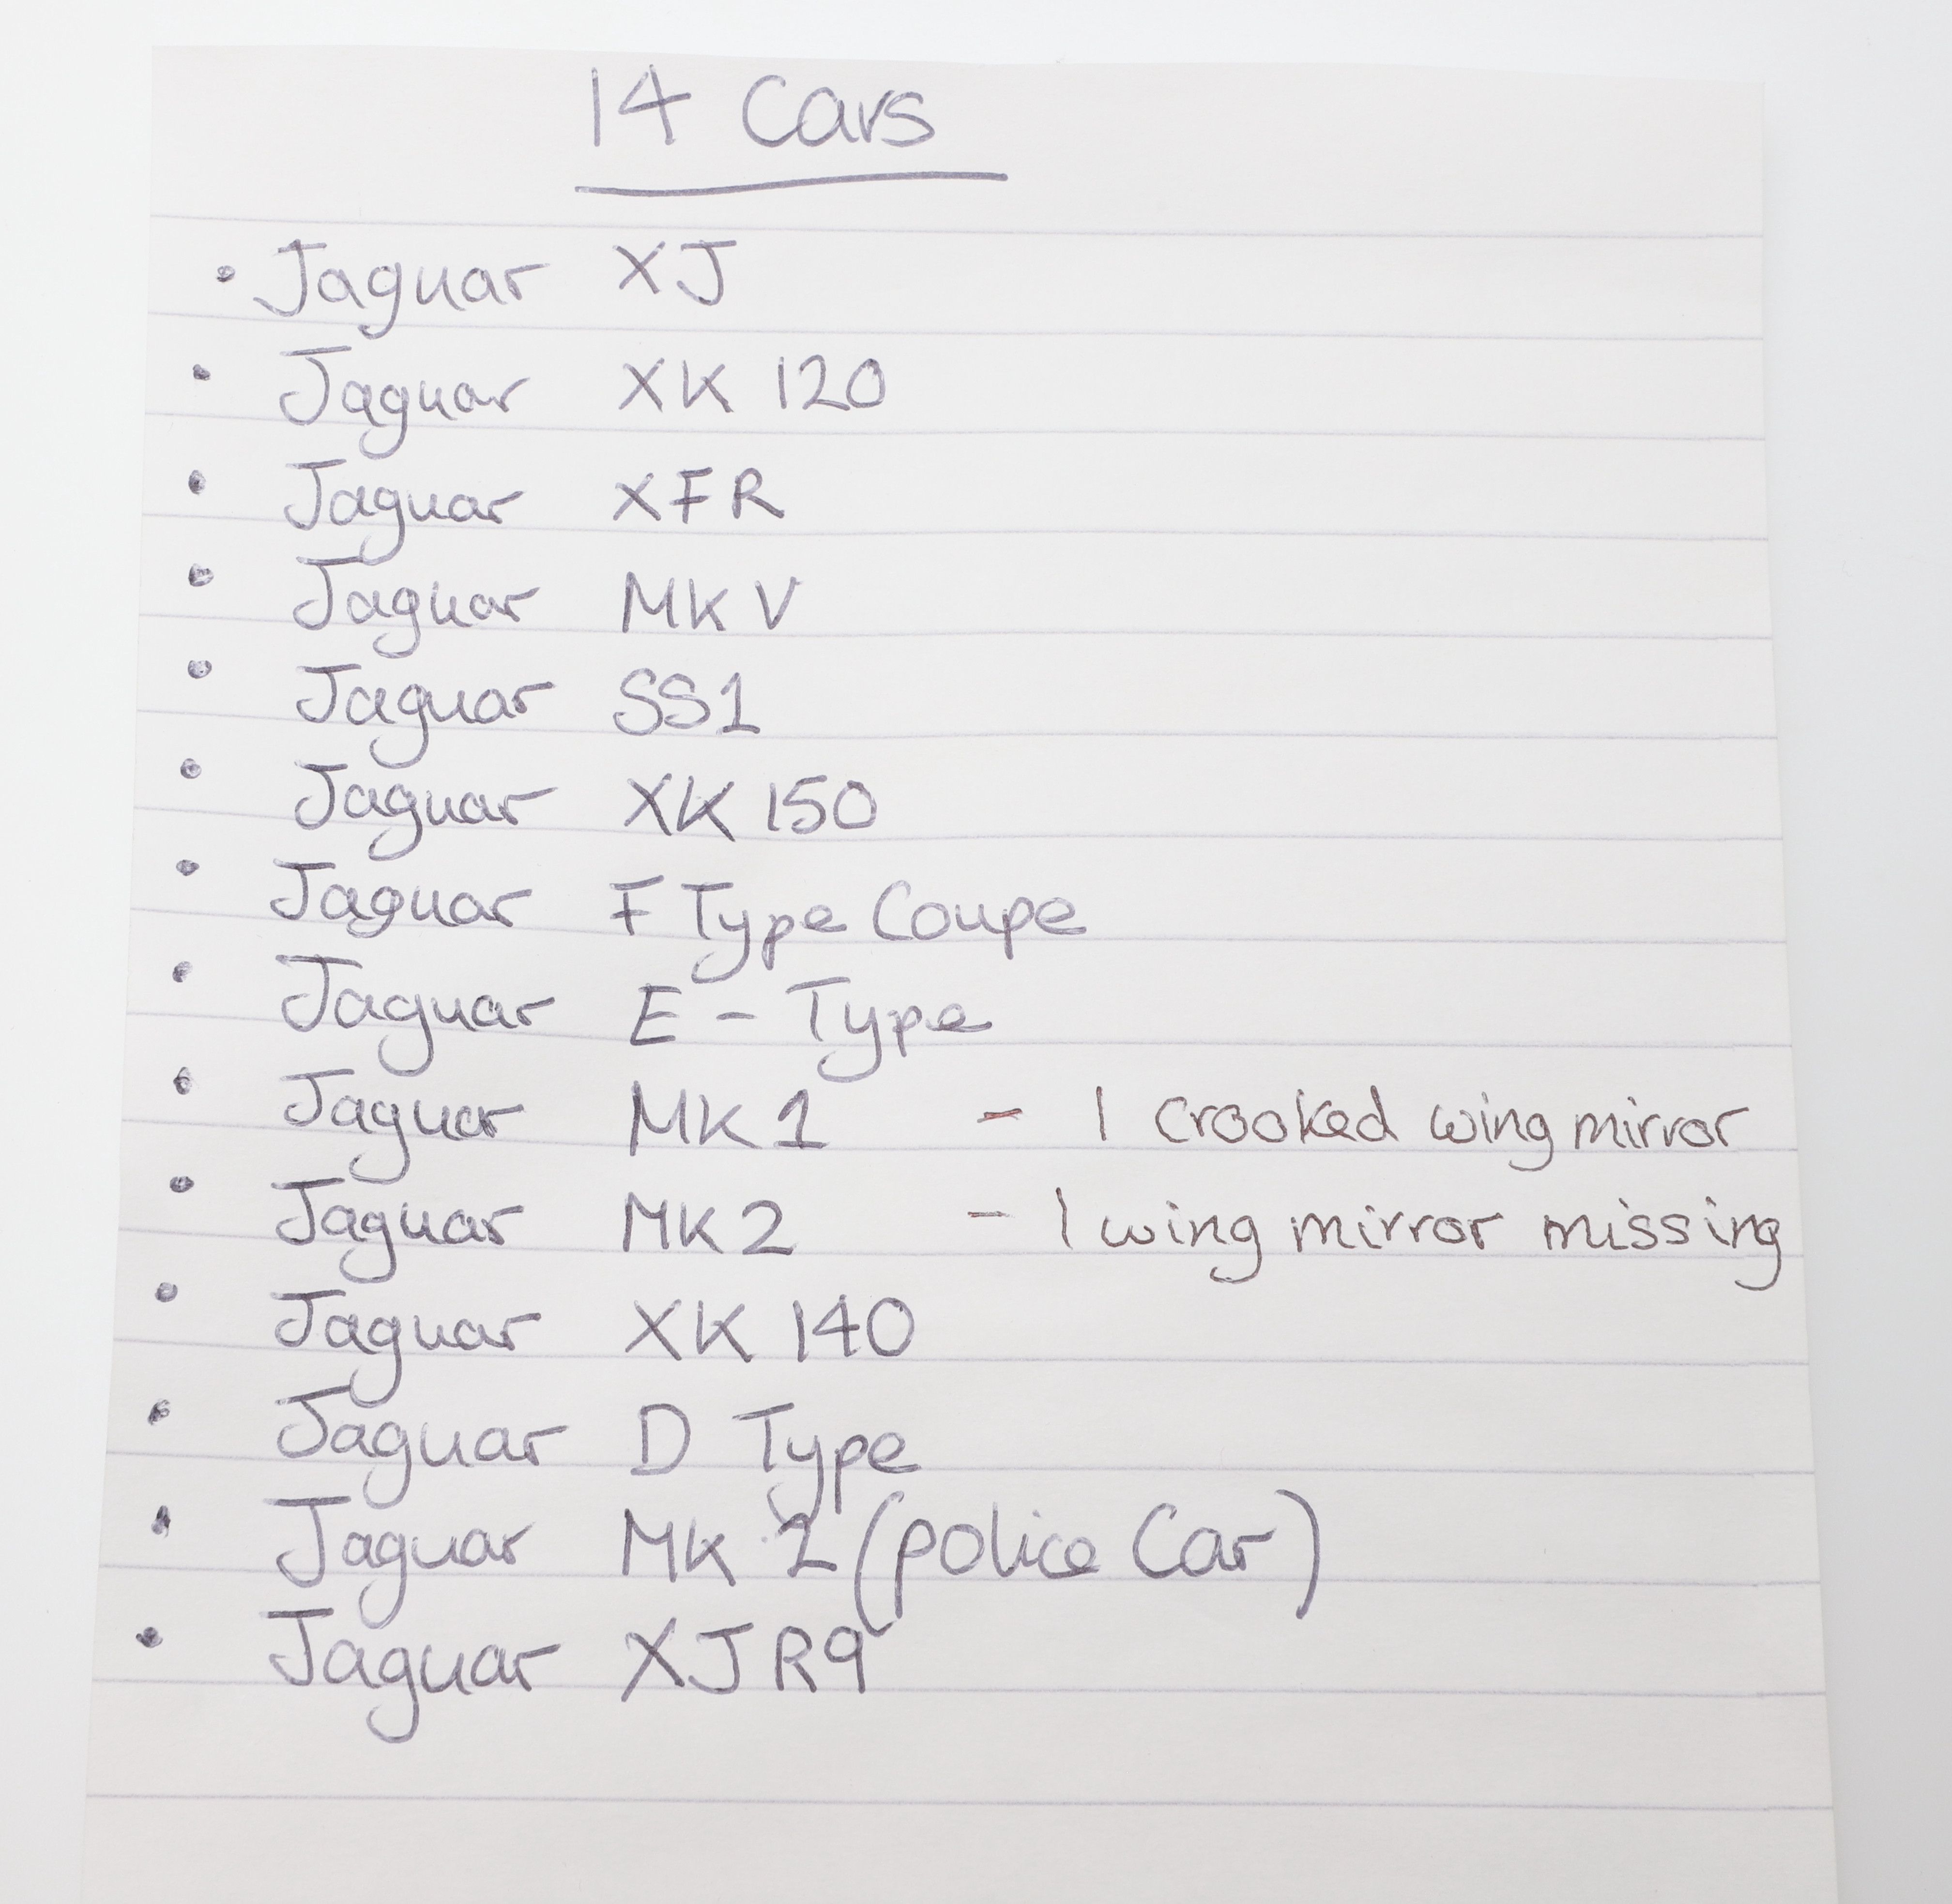 14 Cars
• Jaguar XJ
• Jaguar XK 120
• Jaguar XFR
• Jaguar MK V
• Jaguar SS1
• Jaguar XK 150
• Jaguar F Type Coupe
• Jaguar E - Type
• Jaguar MK 1 - 1 crooked wing mirror
• Jaguar MK 2 - 1 wing mirror missing
• Jaguar XK 140
• Jaguar D Type
• Jaguar MK 2 (police Car)
• Jaguar XJR9